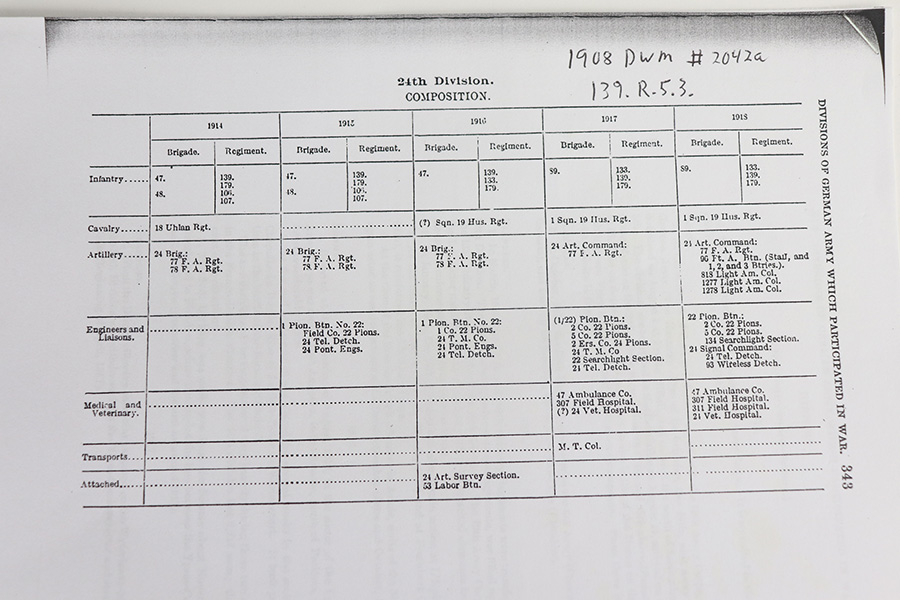 1908 DWM # 2042a
139. R.5.3.
24th Division.
COMPOSITION.
1914 1915 1916 1917 1918
Brigade. Regiment. Brigade. Regiment. Brigade. Regiment. Brigade. Regiment. Brigade. Regiment.
Infantry...... 47. 139. 47. 139. 47. 139. 89. 133. 89. 133.
179. 179. 133. 139. 139.
48. 106. 48. 106. 179. 179. 179.
107. 107.
Cavalry...... 18 Uhlan Rgt. (?) Sqn. 19 Hus. Rgt. 1 Sqn. 19 Hus. Rgt. 1 Sqn. 19 Hus. Rgt.
Artillery...... 24 Brig.: 24 Brig.: 24 Brig.: 24 Art. Command: 24 Art. Command:
77 F. A. Rgt. 77 F. A. Rgt. 77 F. A. Rgt. 77 F. A. Rgt. 77 F. A. Rgt.
78 F. A. Rgt. 78 F. A. Rgt. 78 F. A. Rgt. 96 Ft. A. Btn. (Staff, and
1, 2, and 3 Btries.).
818 Light Am. Col.
1277 Light Am. Col.
1278 Light Am. Col.
Engineers and 1 Pion. Btn. No. 22: 1 Pion. Btn. No. 22: (1/22) Pion. Btn.: 22 Pion. Btn.:
Liaisons. Field Co. 22 Pions. 1 Co. 22 Pions. 2 Co. 22 Pions. 2 Co. 22 Pions.
24 Tel. Detch. 24 T. M. Co. 5 Co. 22 Pions. 5 Co. 22 Pions.
24 Pont. Engs. 24 Pont. Engs. 2 Ers. Co. 24 Pions. 134 Searchlight Section.
24 Tel. Detch. 24 T. M. Co 24 Signal Command:
22 Searchlight Section. 24 Tel. Detch.
24 Tel. Detch. 93 Wireless Detch.
Medical and 47 Ambulance Co. 47 Ambulance Co.
Veterinary. 307 Field Hospital. 307 Field Hospital.
(?) 24 Vet. Hospital. 311 Field Hospital.
24 Vet. Hospital.
Transports.... M. T. Col.
Attached..... 24 Art. Survey Section.
53 Labor Btn.
DIVISIONS OF GERMAN ARMY WHICH PARTICIPATED IN WAR. 343